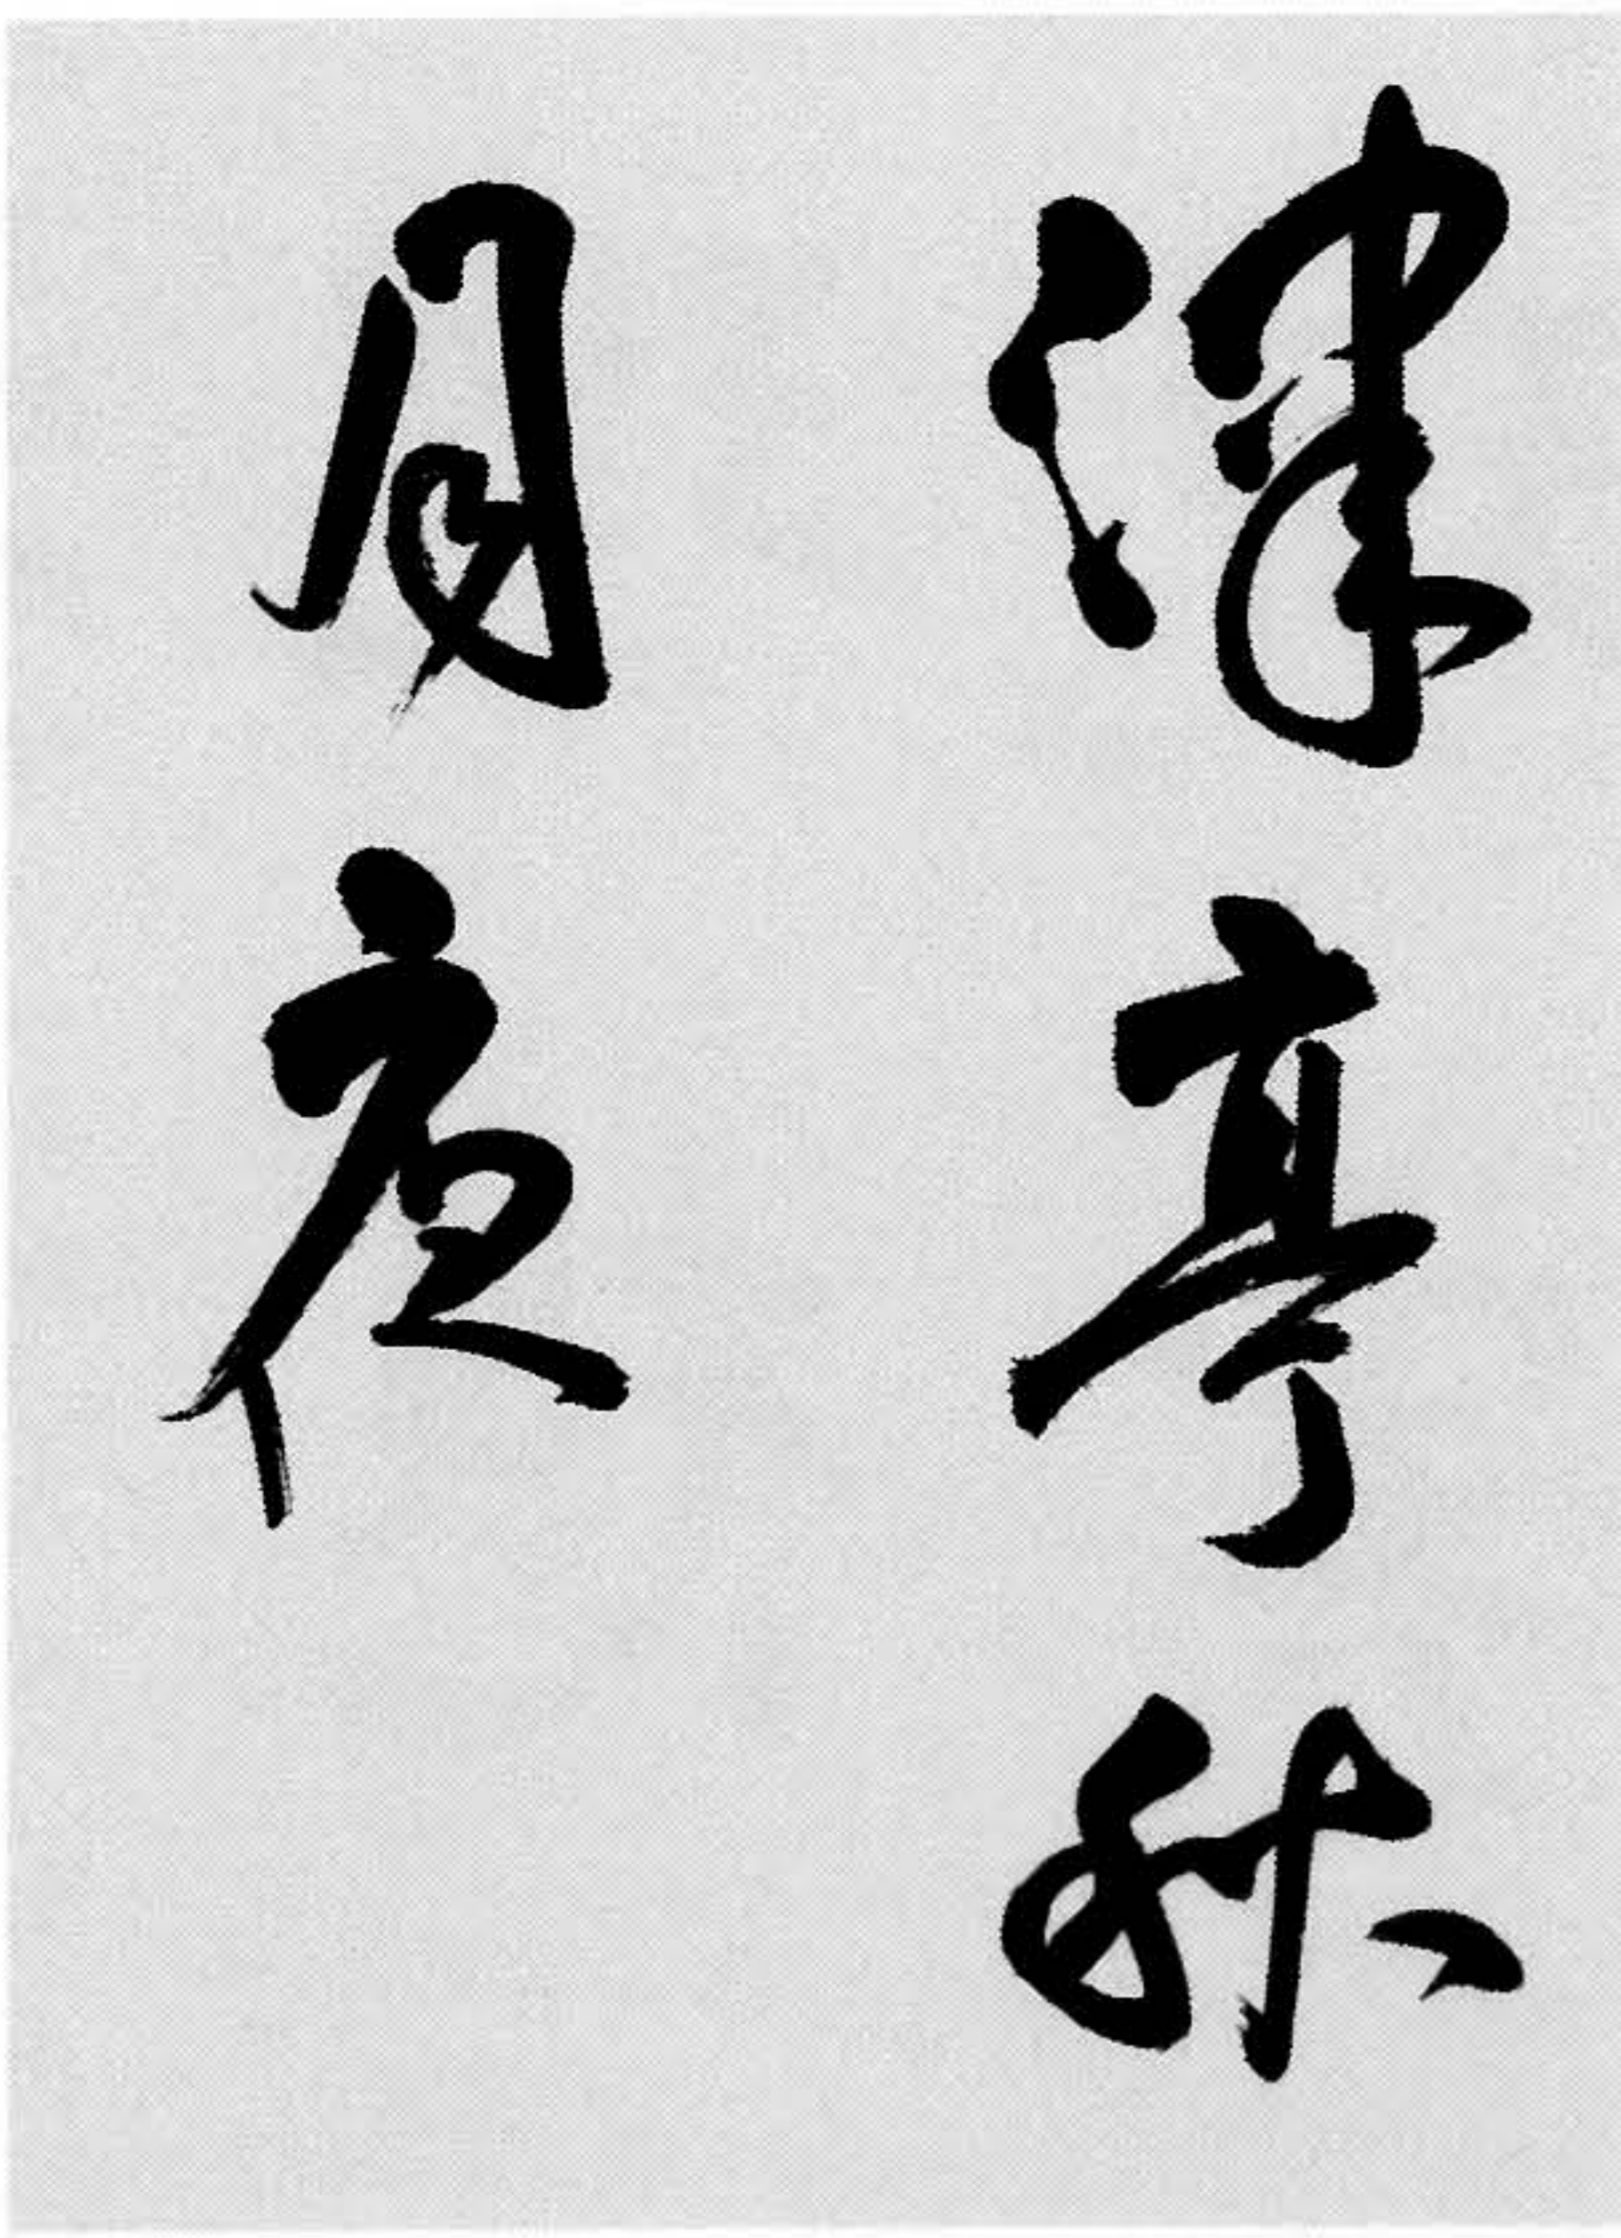 津亭秋
月夜